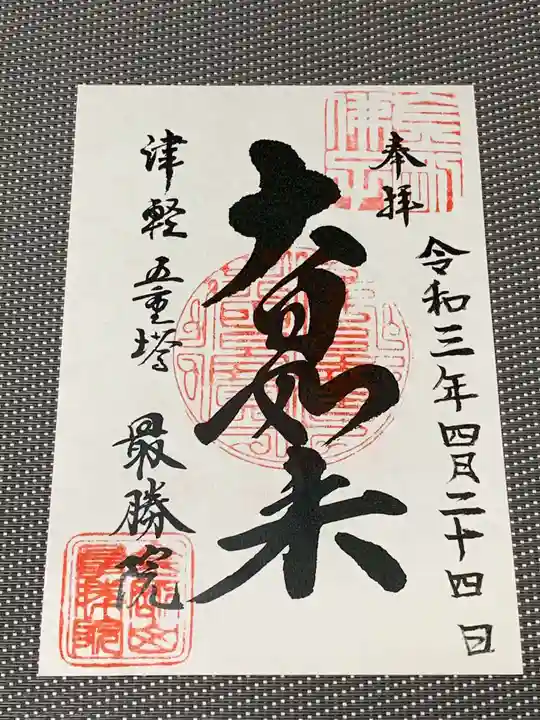 奉拝
令和三年四月二十四日
大日如来
津軽 五重塔 最勝院